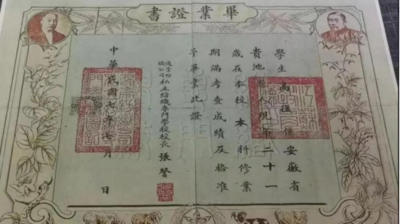 畢業證書
學生高係安徽省
貴池縣現年二十一
歲在本校本科修業
期滿考查成績及格准
予畢業此證
私立紡織專門學校校長張謇
中華民國年七月日